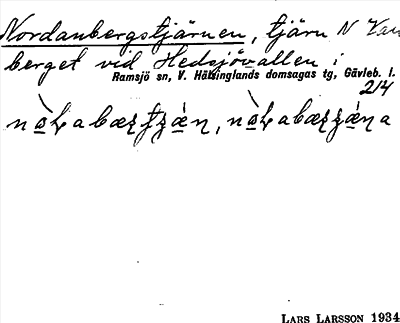 Nordanbergstjärnen, tjärn N Van
berget vid Hedsjövallen i
Ramsjö sn, V. Hälsinglands domsagas tg, Gävleb. l.
214
LARS LARSSON 1934